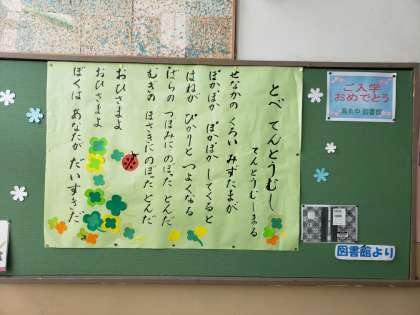 とべ てんとうむし
てんとうむし まる
せなかの くろい みずたまが
ぽかぽか ぽかぽか してくると
はねが ぴかりと つよくなる
ばらの つぼみに のぼった とんだ
むぎの ほさきに のぼった とんだ
おひさまよ
おひさまよ
ぼくは あなたが だいすきだ
ご入学
おめでとう
図書館より